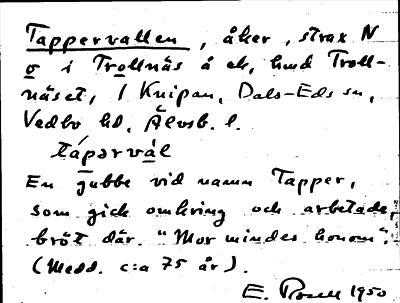 Tappervallen, åker, strax N
o i Trollnäs å ek, hmd Troll-
näset, / Knipan, Dals-Eds sn,
Vedbo hd, Älvsb. l.
tápərvàl
En gubbe vid namn Tapper,
som gick omkring och arbetade,
bröt där. "Mor mindes honom".
(Medd. c:a 75 år).
E. 1950